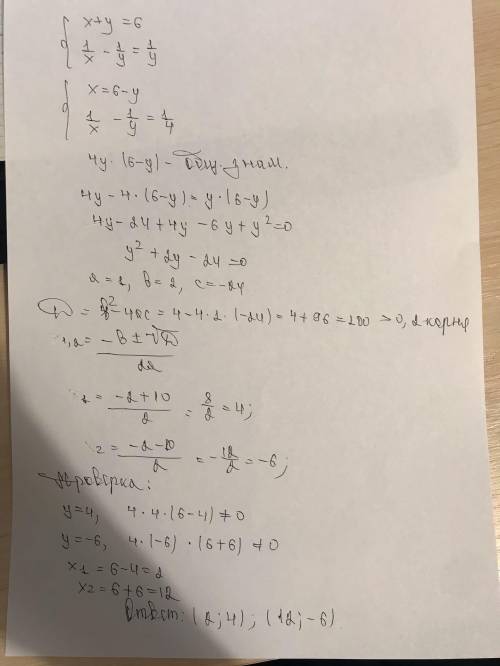 x+y=6
1/x - 1/y = 1/y
x=6-y
1/x - 1/y = 1/4
4y·(6-y) - общ. знам.
4y-4·(6-y)=y·(6-y)
4y-24+4y-6y+y²=0
y²+2y-24=0
a=1, b=2, c=-24
D = b²-4ac = 4-4·1·(-24) = 4+96=100 >0, 2 корня
1,2 = (-b±√D)/2a
1 = (-2+10)/2 = 8/2 = 4;
2 = (-2-10)/2 = -12/2 = -6;
Проверка:
y=4, 4·4·(6-4) ≠0
y=-6, 4·(-6)·(6+6) ≠0
x1 = 6-4=2
x2=6+6=12
Ответ: (2;4); (12;-6)